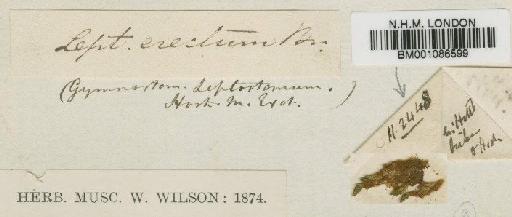 Lept. erectum Br.
N.H.M. LONDON
BM001086599
(Gymnostom. Leptostomum.
Hook. M. Exot. )
N. 2448
HERB. MUSC. W. WILSON: 1874.